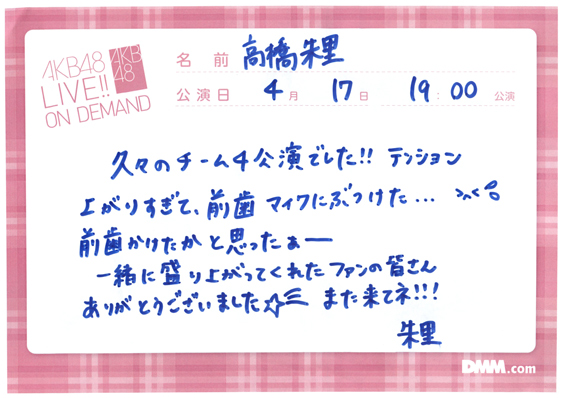 AKB48
LIVE!!
ON DEMAND
AKB
48
名前 高橋朱里
公演日 4月 17日 19:00 公演
久々のチーム4公演でした!! テンション
上がりすぎて、前歯マイクにぶつけた…
前歯かけたかと思ったぁー
一緒に盛り上がってくれたファンの皆さん
ありがとうございました☆ また来てネ!!!
朱里
DMM.com